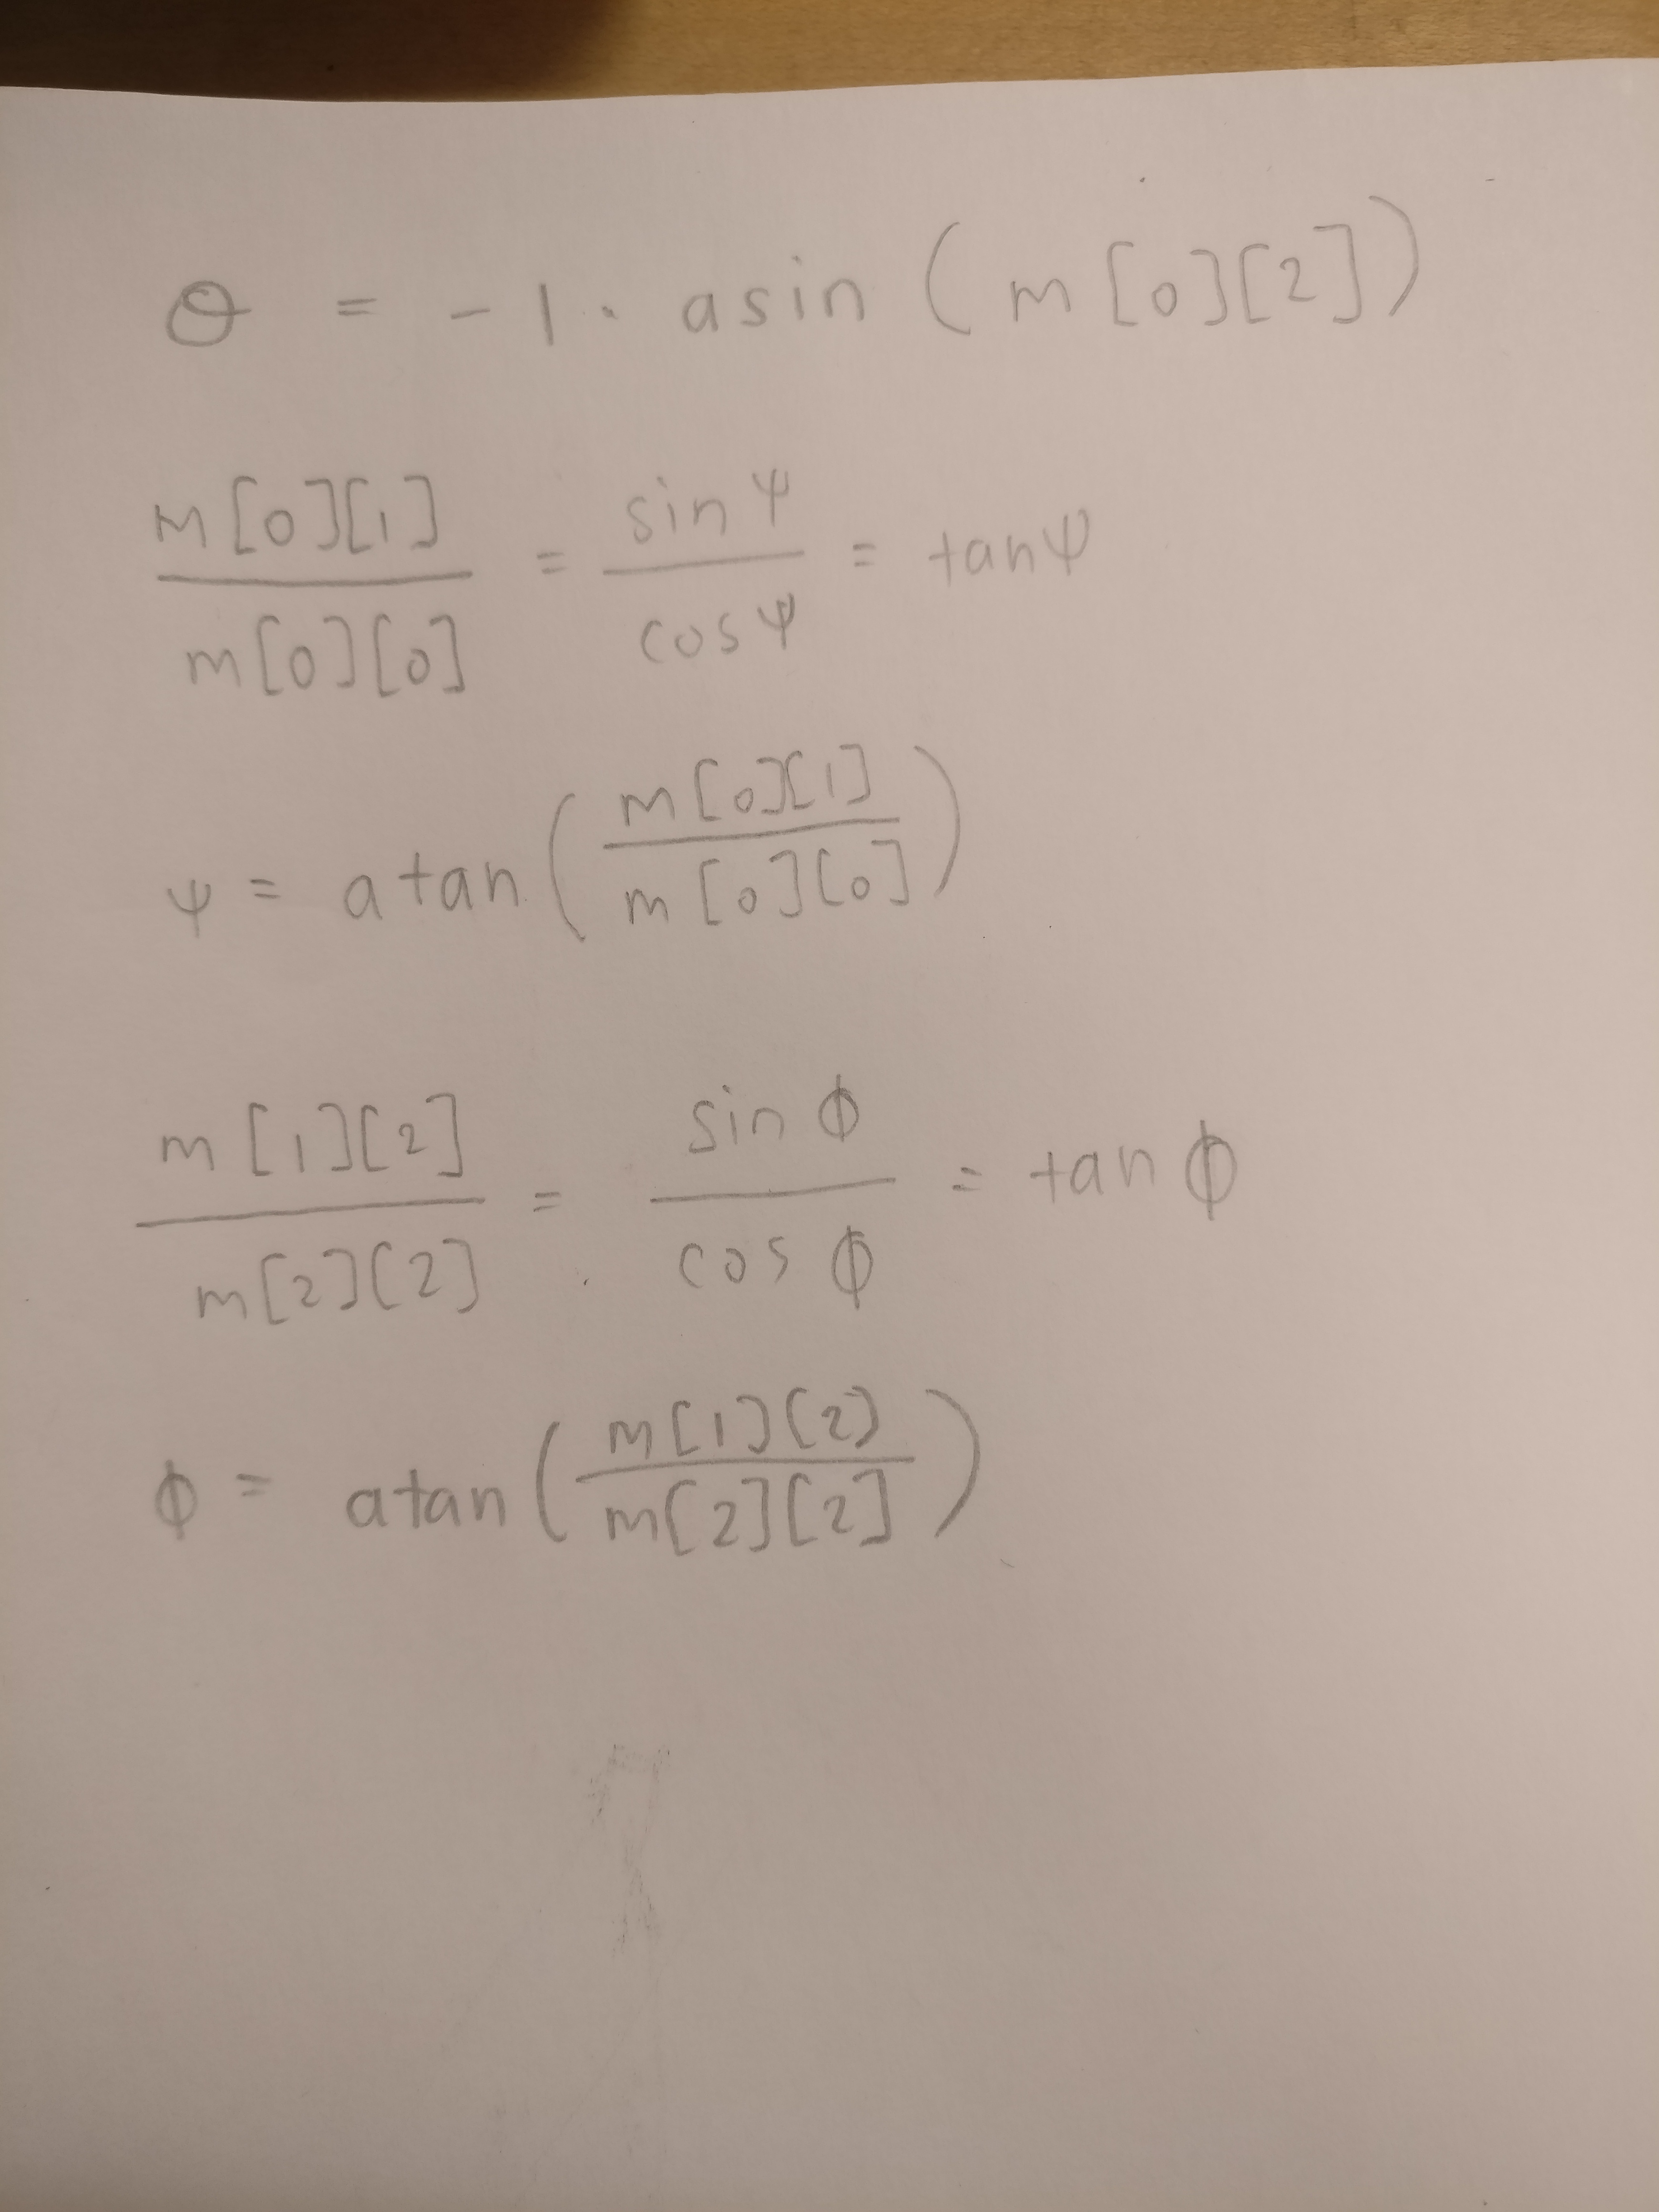 θ = -1 · asin (m[0][2])
m[0][1] / m[0][0] = sin ψ / cos ψ = tan ψ
ψ = atan (m[0][1] / m[0][0])
m[1][2] / m[2][2] = sin ϕ / cos ϕ = tan ϕ
ϕ = atan (m[1][2] / m[2][2])